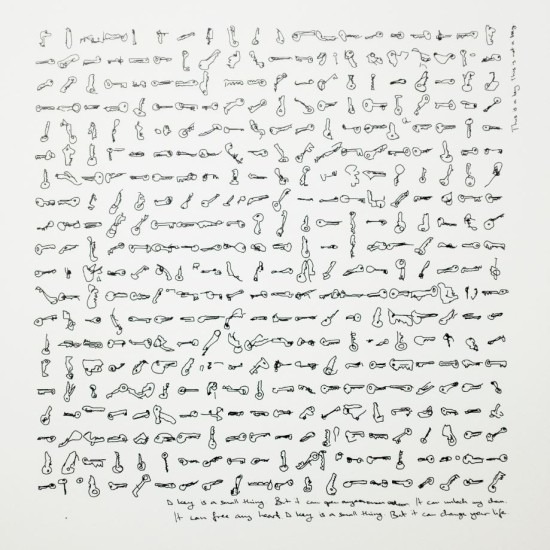 This is a key this is not a key
A key is a small thing But it can open It can unlock any door.
It can free any heart A key is a small thing But it can change your life